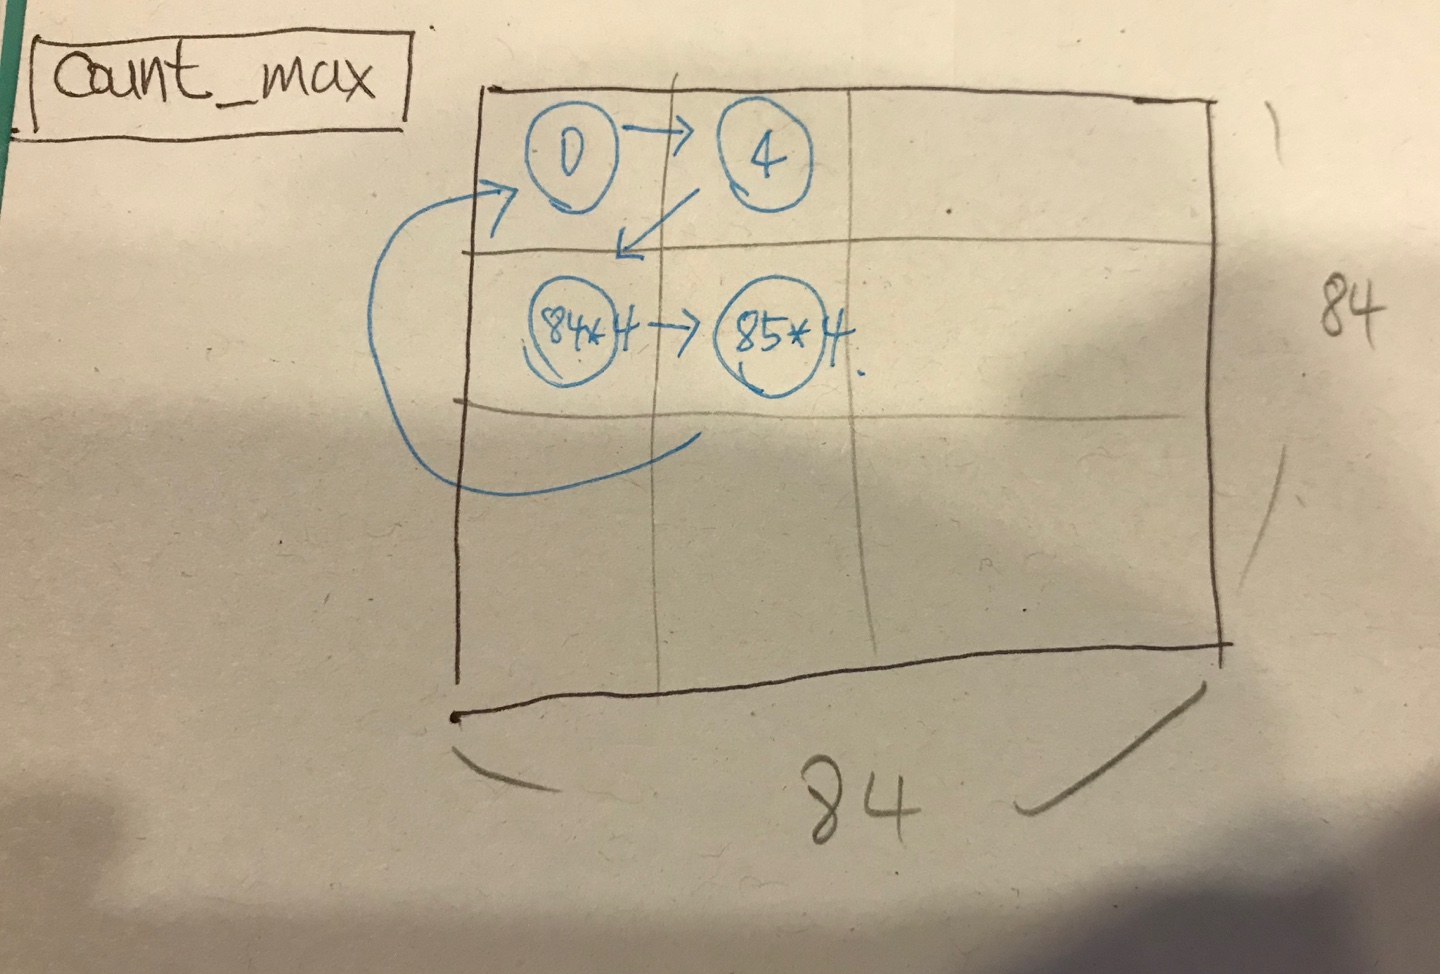 Count_max
0 → 4
84*4 → 85*4.
84
84